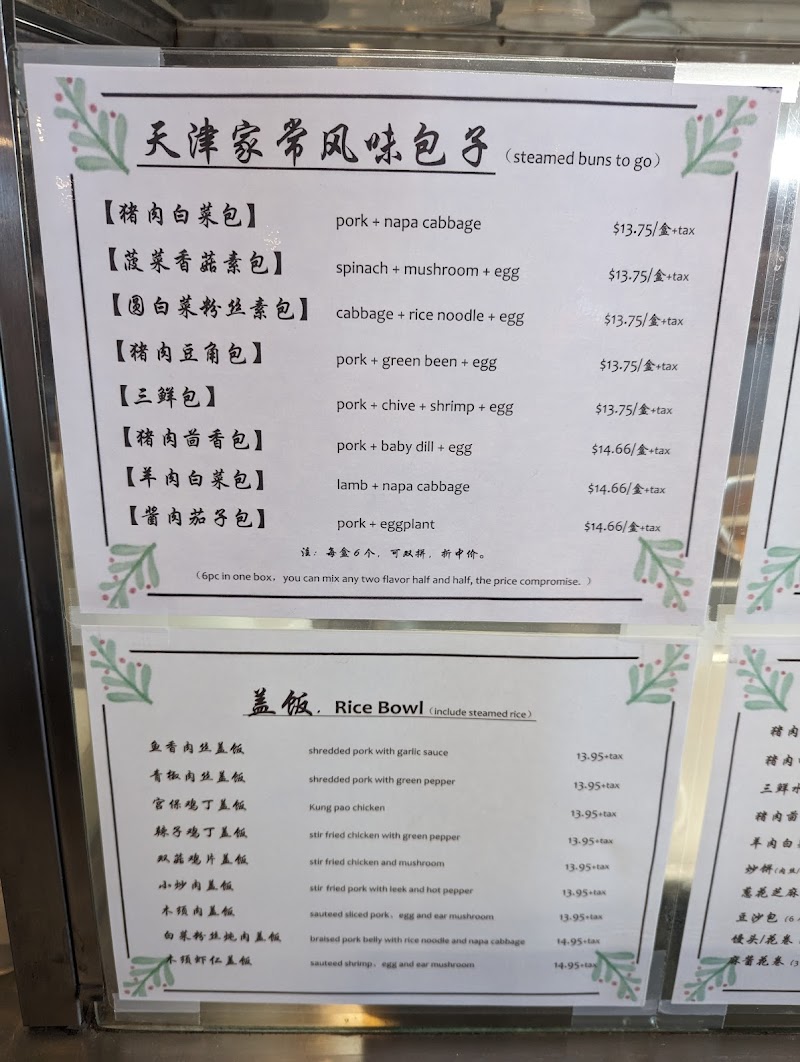 天津家常风味包子（steamed buns to go）
【猪肉白菜包】 pork + napa cabbage $13.75/盒+tax
【菠菜香菇素包】 spinach + mushroom + egg $13.75/盒+tax
【圆白菜粉丝素包】 cabbage + rice noodle + egg $13.75/盒+tax
【猪肉豆角包】 pork + green been + egg $13.75/盒+tax
【三鲜包】 pork + chive + shrimp + egg $13.75/盒+tax
【猪肉茴香包】 pork + baby dill + egg $14.66/盒+tax
【羊肉白菜包】 lamb + napa cabbage $14.66/盒+tax
【酱肉茄子包】 pork + eggplant $14.66/盒+tax
注：每盒6个，可双拼，折中价。
（6pc in one box，you can mix any two flavor half and half, the price compromise. ）
盖饭，Rice Bowl（include steamed rice）
鱼香肉丝盖饭 shredded pork with garlic sauce 13.95+tax
青椒肉丝盖饭 shredded pork with green pepper 13.95+tax
宫保鸡丁盖饭 Kung pao chicken 13.95+tax
辣子鸡丁盖饭 stir fried chicken with green pepper 13.95+tax
双菇鸡片盖饭 stir fried chicken and mushroom 13.95+tax
小炒肉盖饭 stir fried pork with leek and hot pepper 13.95+tax
木须肉盖饭 sauteed sliced pork，egg and ear mushroom 13.95+tax
白菜粉丝炖肉盖饭 braised pork belly with rice noodle and napa cabbage 14.95+tax
木须虾仁盖饭 sauteed shrimp，egg and ear mushroom 14.95+tax
猪肉
猪肉
三鲜水
猪肉茴
羊肉白
炒饼(肉丝/
葱花芝麻
豆沙包（6
馒头/花卷
麻酱花卷（3